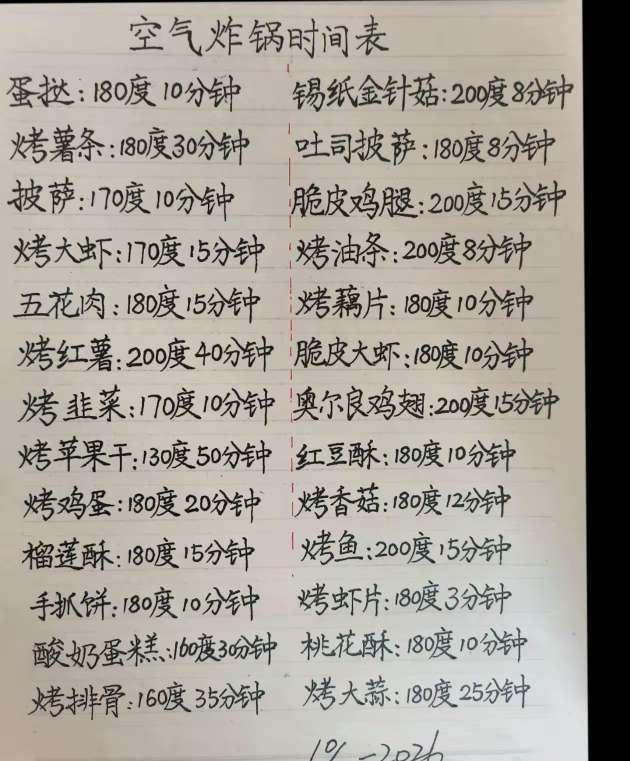 空气炸锅时间表
蛋挞:180度10分钟
烤薯条:180度30分钟
披萨:170度10分钟
烤大虾:170度15分钟
五花肉:180度15分钟
烤红薯:200度40分钟
烤韭菜:170度10分钟
烤苹果干:130度50分钟
烤鸡蛋:180度20分钟
榴莲酥:180度15分钟
手抓饼:180度10分钟
酸奶蛋糕:160度30分钟
烤排骨:160度35分钟
锡纸金针菇:200度8分钟
吐司披萨:180度8分钟
脆皮鸡腿:200度15分钟
烤油条:200度8分钟
烤藕片:180度10分钟
脆皮大虾:180度10分钟
奥尔良鸡翅:200度15分钟
红豆酥:180度10分钟
烤香菇:180度12分钟
烤鱼:200度15分钟
烤虾片:180度3分钟
桃花酥:180度10分钟
烤大蒜:180度25分钟